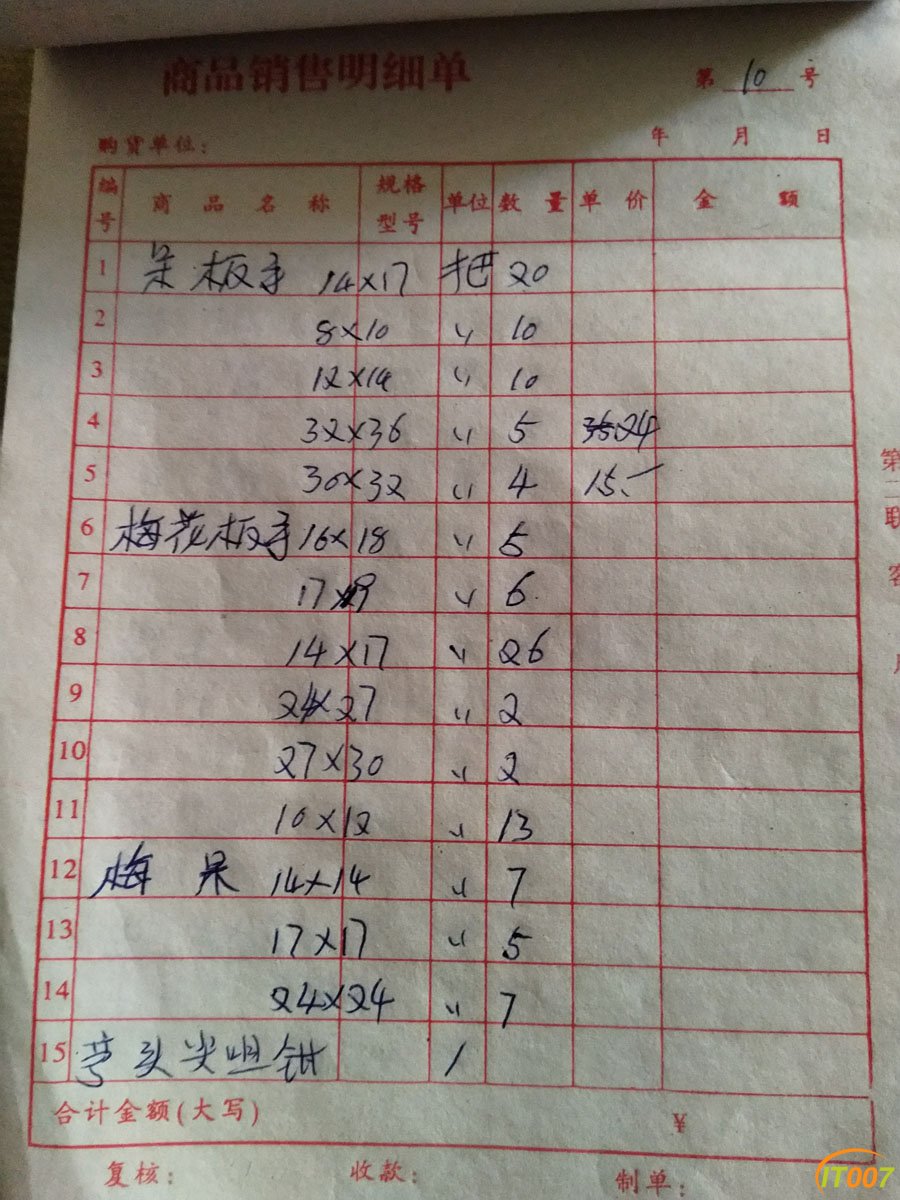 商品销售明细单
第 10 号
购货单位： 年 月 日
编号 商品名称 规格型号 单位 数量 单价 金额
1 呆板手 14×17 把 20
2 8×10 〃 10
3 12×14 〃 10
4 32×36 〃 5 35 24
5 30×32 〃 4 15.-
6 梅花板手 16×18 〃 5
7 17×19 〃 6
8 14×17 〃 26
9 24×27 〃 2
10 27×30 〃 2
11 10×12 〃 13
12 梅 呆 14×14 〃 7
13 17×17 〃 5
14 24×24 〃 7
15 弯头尖咀钳 1
合计金额(大写) ¥
复核： 收款： 制单：
第二联 客
IT007